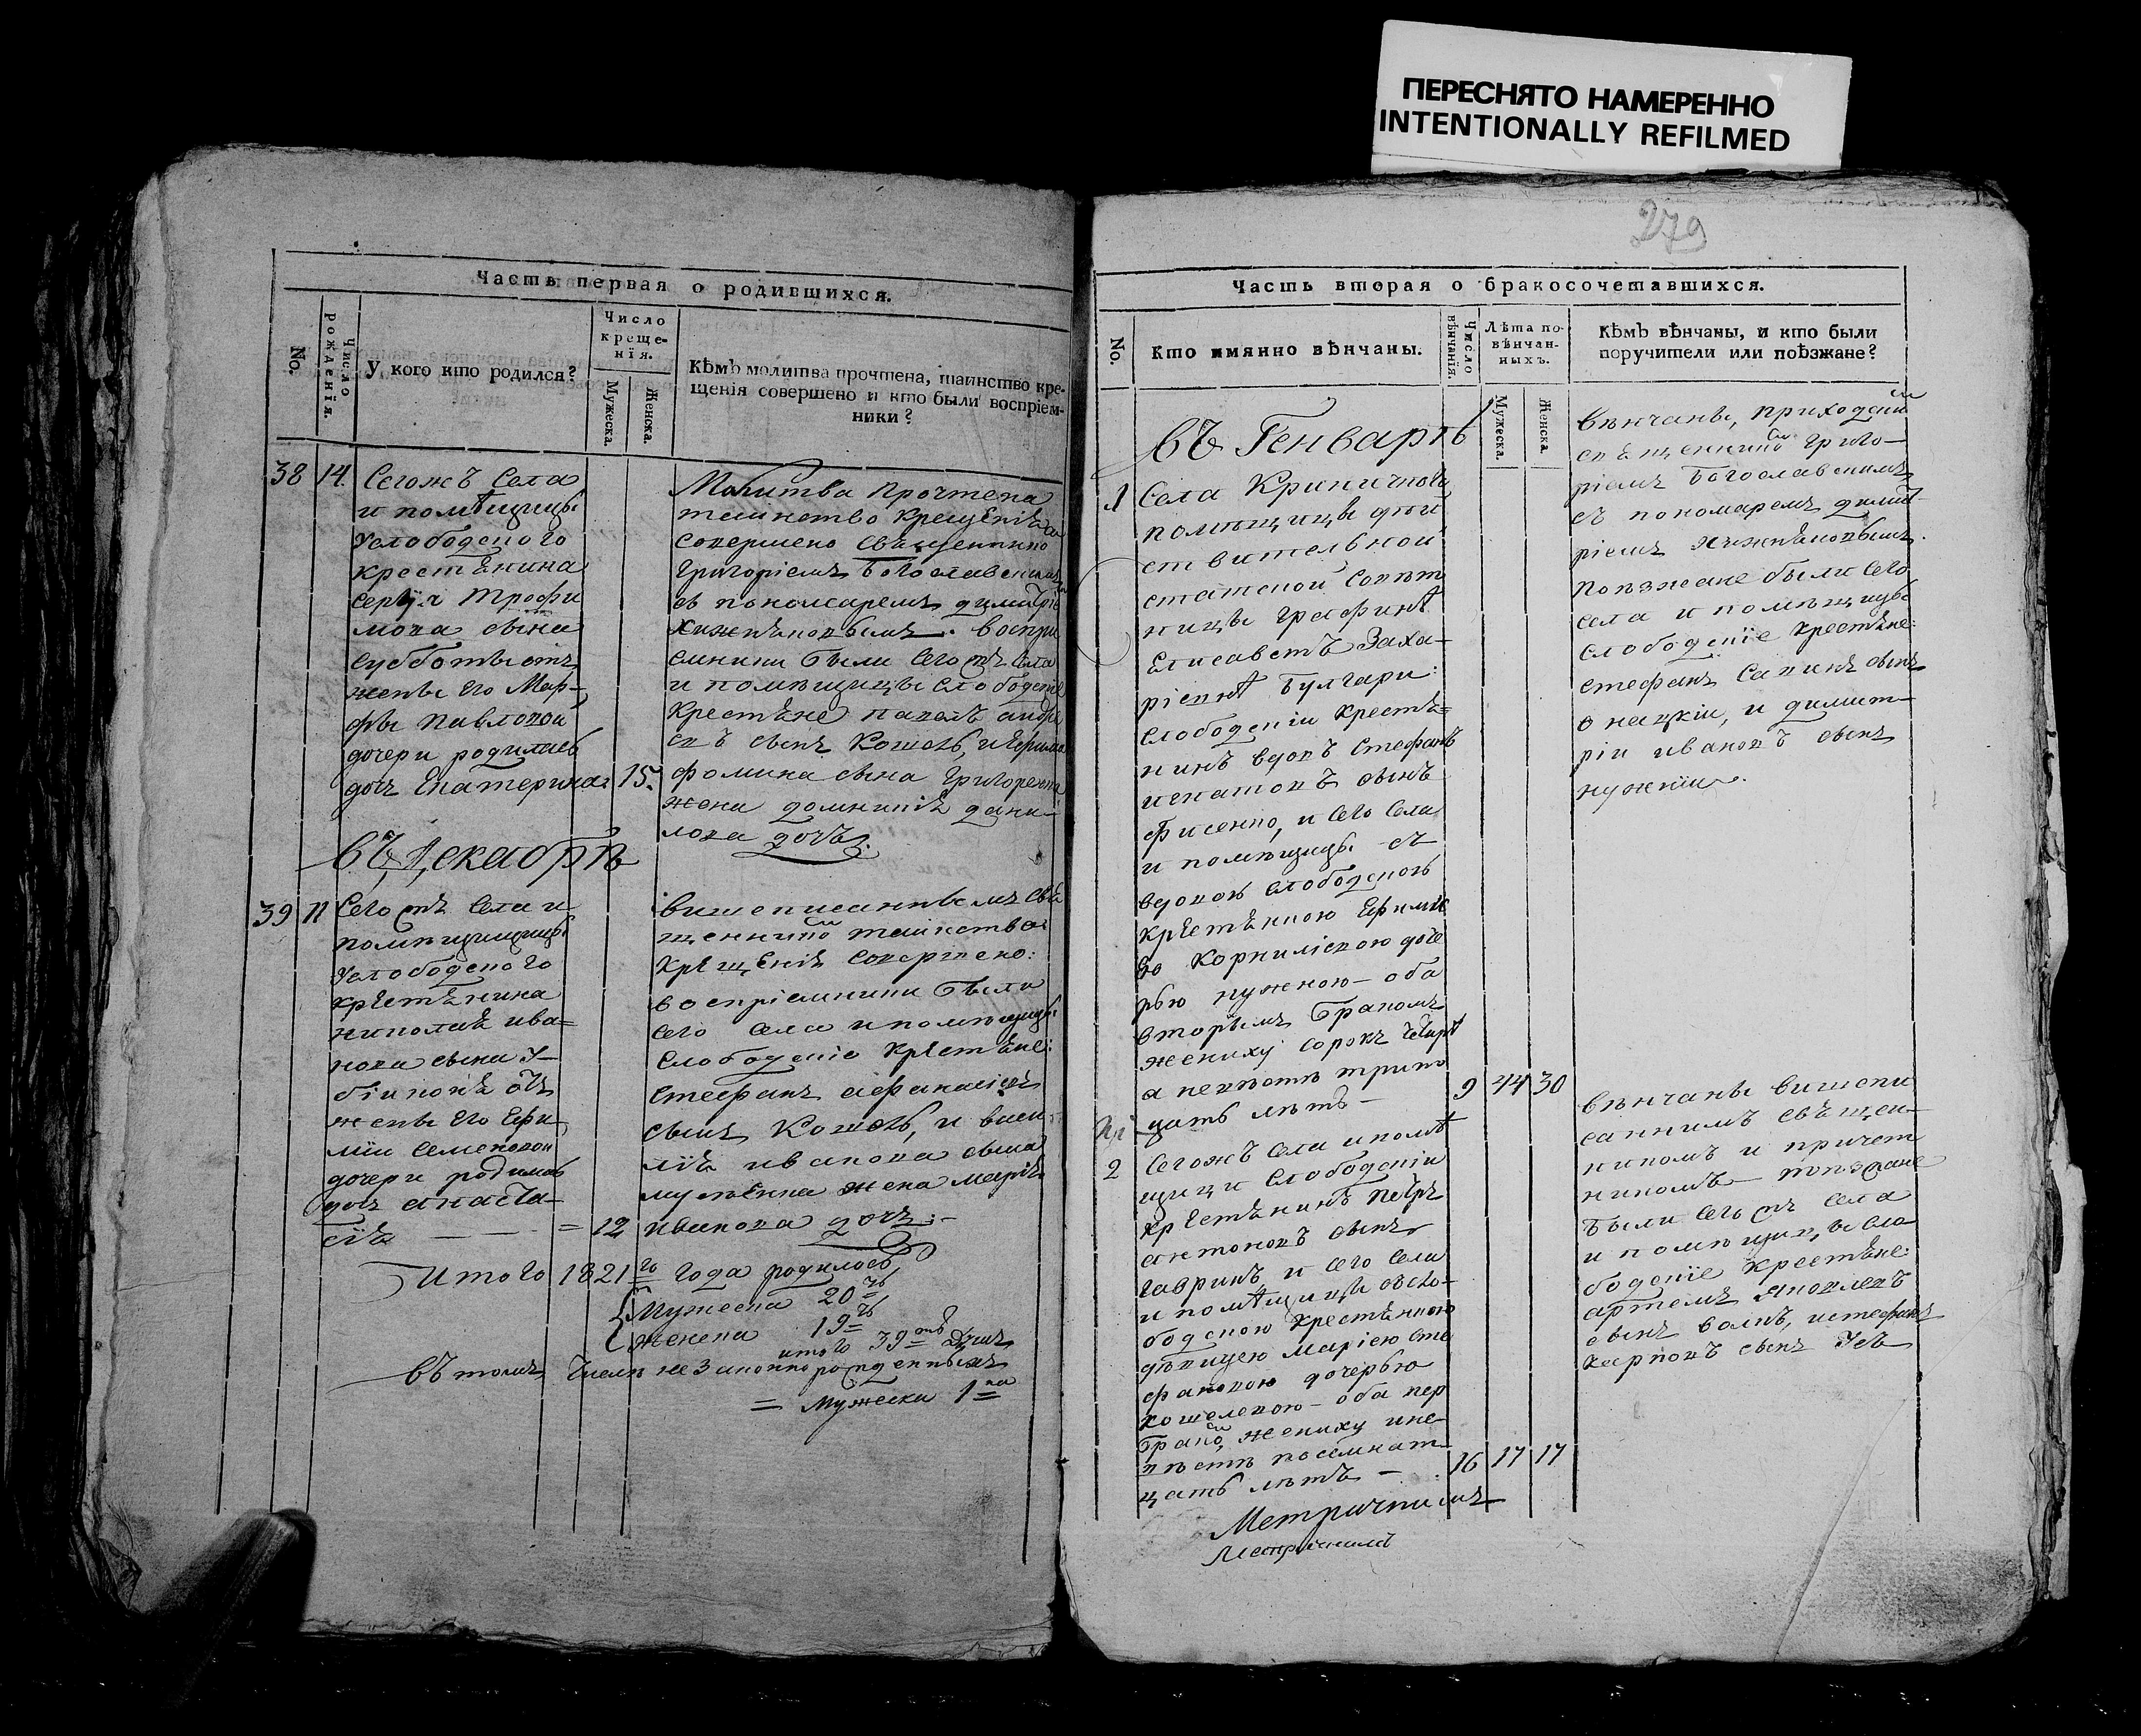 ПЕРЕСНЯТО НАМЕРЕННО
INTENTIONALLY REFILMED
Часть первая о родившихся.
No.
Число рожденія.
У кого кто родился?
Число
креще-
нія.
Мужеска.
Женска.
Кѣмъ молитва прочтена, таинство кре-
щенія совершено и кто были воспріем-
ники?
38 14.
Сегожъ села
и помѣщицы
Услободского
крестянина
Сергѣя Трофи
мова сына
Субботы отъ
жены его Мар-
фы Павловой
дочери родилась
дочь Екатерина: 15.
Молитва прочтена
таинство крещенія
совершено священнико
Григоріемъ Богославскимъ
съ пономаремъ Димитріе
Хижняковымъ. воспрі
емники были сегожъ села
и помѣщицы слободскіе
крестяне Павелъ Андре
евъ сынъ Кошель, и Ефима
Фомина сына Григоренка
жена Домникія Дани-
лова дочь.
Въ Декабрѣ
39 11
Сегожъ села и
помѣщицы
Услободского
крестянина
Николая Ива=
нова сына
отъ
жены его Ефи
міи Семеновой
дочери родилась
дочь Анаста-
сія — — = 12
вишеписаннымъ свя
щеннико таинство
крещенія совершено:
воспріемники были
сего села и помѣщицы
слободскіе крестяне:
Стефанъ Афанасіевъ
сынъ Кошель, и Васи
лія Иванова сына
жена Марія
Иванова дочь:-
Итого 1821го года родилось
Мужеска 20ть
Женска 19ть
итого 39ть душъ
Въ томъ числѣ незаконнорожденныхъ
= Мужеска 1на
279
Часть вторая о бракосочетавшихся.
No.
Кто имянно вѣнчаны.
Число вѣнчанія.
Лѣта по-
вѣнчан-
ныхъ.
Мужеска.
Женска.
Кѣмъ вѣнчаны, и кто были
поручители или поѣзжане?
Въ Генварѣ
1
Села Криничной
помѣщицы дѣй
ствительной
статской совѣт
ницы Графинѣ
Елисаветѣ Заха-
ріевнѣ Булгари:
слободскіи крестя=
нинъ вдовъ Стефанъ
Игнатовъ сынъ
Фисенко, и сего села
и помѣщицы съ
вдовою слободскою
крестянкою Ефимі
ею Корниліевою доче
рью Нужною - оба
вторымъ бракомъ
жениху сорокъ четырѣ
а невѣстѣ трит
цать лѣтъ - 9 44 30
вѣнчаны приходски
священнико Григо-
ріемъ Богославскимъ
съ пономаремъ Димит
ріемъ Хижняковымъ.
поѣзжане были сего
села и помѣщицы
слободскіе крестяне:
Стефанъ Савинъ сынъ
и Димит-
рій Ивановъ сынъ
Нужній.
2
Сегожъ села и помѣ
щици слободскіи
крестянинъ Петръ
Антоновъ сынъ
Гавришъ, и сего села
и помѣщицы съ сло-
бодскою крестянкою
дѣвицею Маріею Сте
фановою дочерью
Кошелевою - оба пер
брако, жениху и не-
вѣстѣ по семнат
цать лѣтъ - 16 17 17
вѣнчаны вишепи
саннимъ священ-
никомъ и причет
никомъ - поѣзжане
были сегожъ села
и помѣщицы сло
бодскіе крестяне:
Артемъ Яковлевъ
сынъ и Стефанъ
Карповъ сынъ Усъ
Метричнимъ
Метричнимъ